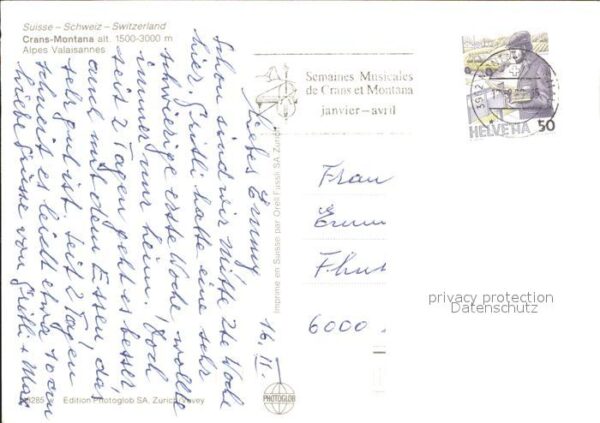 Suisse – Schweiz – Switzerland
Crans-Montana alt. 1500-3000 m
Alpes Valaisannes
16. II.
Liebes Emmy
Schon sind wir Mitte 2te Woche
hier. Gritli hatte eine sehr
schwierige erste Woche wollte
immer nur heim. Doch
seit 2 Tagen geht es besser,
auch mit dem Essen, das
sehr gut ist. Seit 2 Tagen
schneit es leicht etwa 10 cm
Liebe Grüsse von Gritli + Max
8285
Edition Photoglob SA. Zürich/Vevey
Imprimé en Suisse par Orell Füssli SA. Zürich
PHOTOGLOB
Semaines Musicales
de Crans et Montana
janvier – avril
3962
HELVETIA 50
Frau
Emm
Fluh
6000
privacy protection
Datenschutz